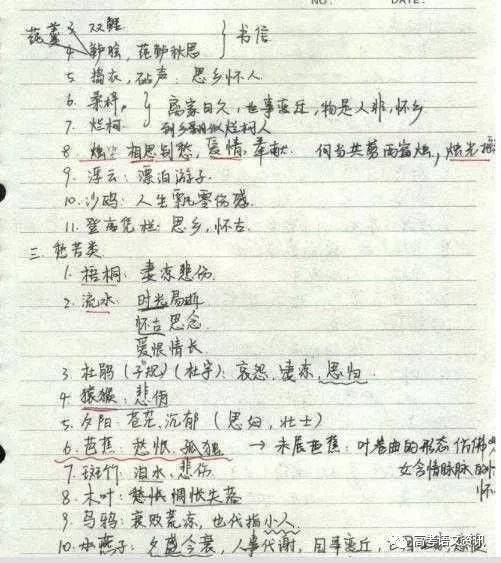 NO. DATE.
3. 双鲤
莼羹 4. 鲈脍, 莼鲈秋思 } 书信
5. 捣衣, 砧声: 思乡怀人
6. 桑梓, } 离家日久, 世事变迁, 物是人非, 怀乡
7. 烂柯: 到乡翻似烂柯人
8. 烛: 相思别愁, 爱情, 奉献. 何当共剪西窗烛, 烛光
9. 浮云: 漂泊游子
10. 沙鸥: 人生飘零伤感
11. 登高凭栏: 思乡, 怀古
三. 愁苦类
1. 梧桐: 凄凉悲伤.
2. 流水: 时光易逝
怀古思念
爱恨情长
3 杜鹃 (子规) (杜宇): 哀怨, 凄凉, 思归
4 猿猴: 悲伤
5. 夕阳: 苍茫, 沉郁 (思妇, 壮士)
6. 芭蕉: 愁恨. 孤独 → 未展芭蕉: 叶卷曲的形态仿佛
女含情脉脉的
怀
7. 斑竹: 泪水, 悲伤
8. 木叶: 愁怅惆怅失落
9. 乌鸦: 衰败荒凉, 也代指小人
10. 燕子: 昔盛今衰, 人事代谢, 国事变迁,
高考语文资讯